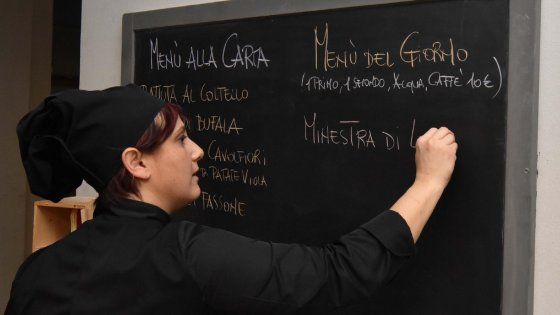 Menù alla Carta
Battuta al coltello
Bufala
Cavolfiori
Patate viola
Fassone
Menù del Giorno
(1 primo, 1 secondo, acqua, caffè 10 €)
Minestra di